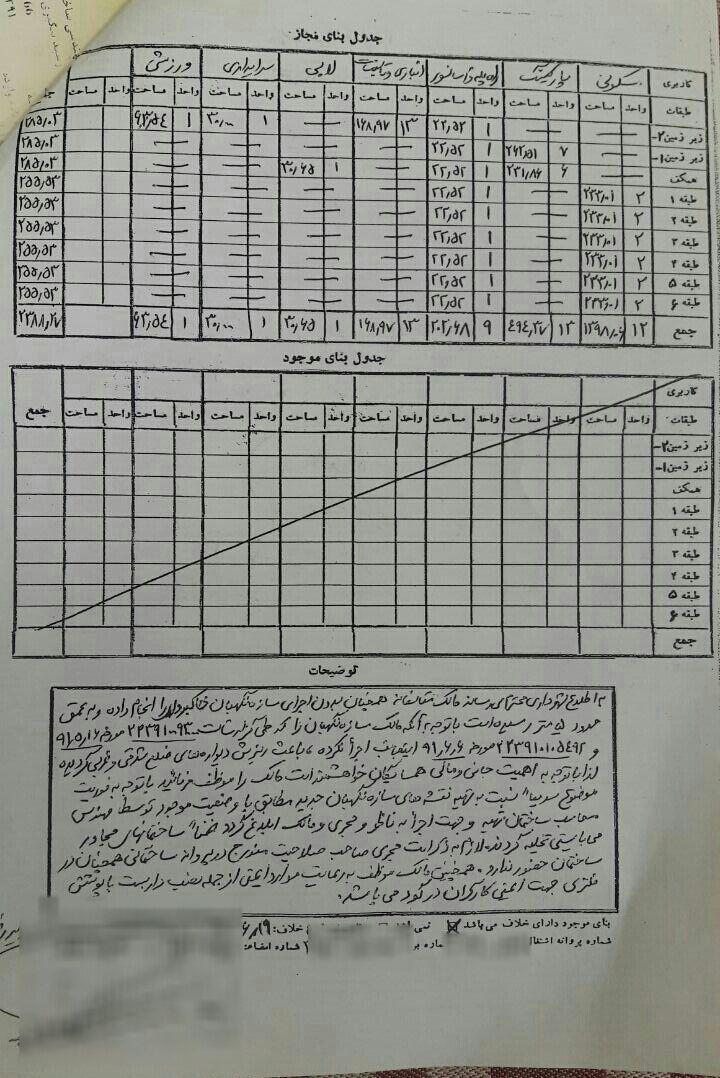 جدول بنای مجاز
کاربری مسکونی پارکینگ راه پله و آسانسور انباری و تاسیسات لابی سرایداری ورزشی
طبقات واحد مساحت واحد مساحت واحد مساحت واحد مساحت واحد مساحت واحد مساحت واحد مساحت
زیر زمین ۲- — — ۱ ۲۲٫۵۲ ۱۳ ۱۶۸٫۹۷ — ۱ ۳۰٫۰۰ ۱ ۶۳٫۵۴ ۲۸۵٫۰۳
زیر زمین ۱- — ۷ ۲۶۲٫۵۱ ۱ ۲۲٫۵۲ — — — — ۲۸۵٫۰۳
همکف — ۶ ۲۳۱٫۸۶ ۱ ۲۲٫۵۲ — ۱ ۳۰٫۶۵ — — ۲۸۵٫۰۳
طبقه ۱ ۲ ۲۳۳٫۰۱ — ۱ ۲۲٫۵۲ — — — — ۲۵۵٫۵۳
طبقه ۲ ۲ ۲۳۳٫۰۱ — ۱ ۲۲٫۵۲ — — — — ۲۵۵٫۵۳
طبقه ۳ ۲ ۲۳۳٫۰۱ — ۱ ۲۲٫۵۲ — — — — ۲۵۵٫۵۳
طبقه ۴ ۲ ۲۳۳٫۰۱ — ۱ ۲۲٫۵۲ — — — — ۲۵۵٫۵۳
طبقه ۵ ۲ ۲۳۳٫۰۱ — ۱ ۲۲٫۵۲ — — — — ۲۵۵٫۵۳
طبقه ۶ ۲ ۲۳۳٫۰۱ — ۱ ۲۲٫۵۲ — — — — ۲۵۵٫۵۳
جمع ۱۲ ۱۳۹۸٫۰۶ ۱۳ ۴۹۴٫۳۷ ۹ ۲۰۲٫۶۸ ۱۳ ۱۶۸٫۹۷ ۱ ۳۰٫۶۵ ۱ ۳۰٫۰۰ ۱ ۶۳٫۵۴ ۲۳۸۸٫۲۷
جدول بنای موجود
کاربری
طبقات واحد مساحت واحد مساحت واحد مساحت واحد مساحت واحد مساحت واحد مساحت واحد مساحت واحد مساحت جمع
زیر زمین ۲-
زیر زمین ۱-
همکف
طبقه ۱
طبقه ۲
طبقه ۳
طبقه ۴
طبقه ۵
طبقه ۶
جمع
توضیحات
به اطلاع شهرداری محترم می رساند مالک متاسفانه همچنان بدون اجرای سازه نگهبان خاکبرداری را انجام داده و به عمق
حدود ۵ متر رسیده است با توجه به آنکه مالک سازه نگهبان را که طی گزارشات ۲۲۳۹۱۰۰۹۳۰ مورخه ۹۱٫۵٫۱۶
و ۲۲۳۹۱۰۱۰۵۴۹۲ مورخه ۹۱٫۶٫۶ اجرا نکرده، باعث ریزش دیواره های ضلع شرقی و غربی گردیده
لذا با توجه به اهمیت جانی و مالی همسایگان خواهشمند است مالک را موظف فرمائید با توجه به فوریت
موضوع سریعاً نسبت به تهیه نقشه های سازه نگهبان جدید مطابق با وضعیت موجود توسط مهندس
محاسب ساختمان تهیه و جهت اجرا به ناظر و مجری و مالک ابلاغ گردد ضمناً ساختمانهای مجاور
می بایستی تخلیه گردند. لازم به ذکر است مجری صاحب صلاحیت مندرج در پروانه ساختمانی همچنان در
ساختمان حضور ندارد. همچنین مالک موظف به رعایت موارد ایمنی از جمله نصب داربست با پوشش
فلزی جهت ایمنی کارگران در گود می باشد.
بنای موجود دارای خلاف می باشد خلاف:
شماره پروانه